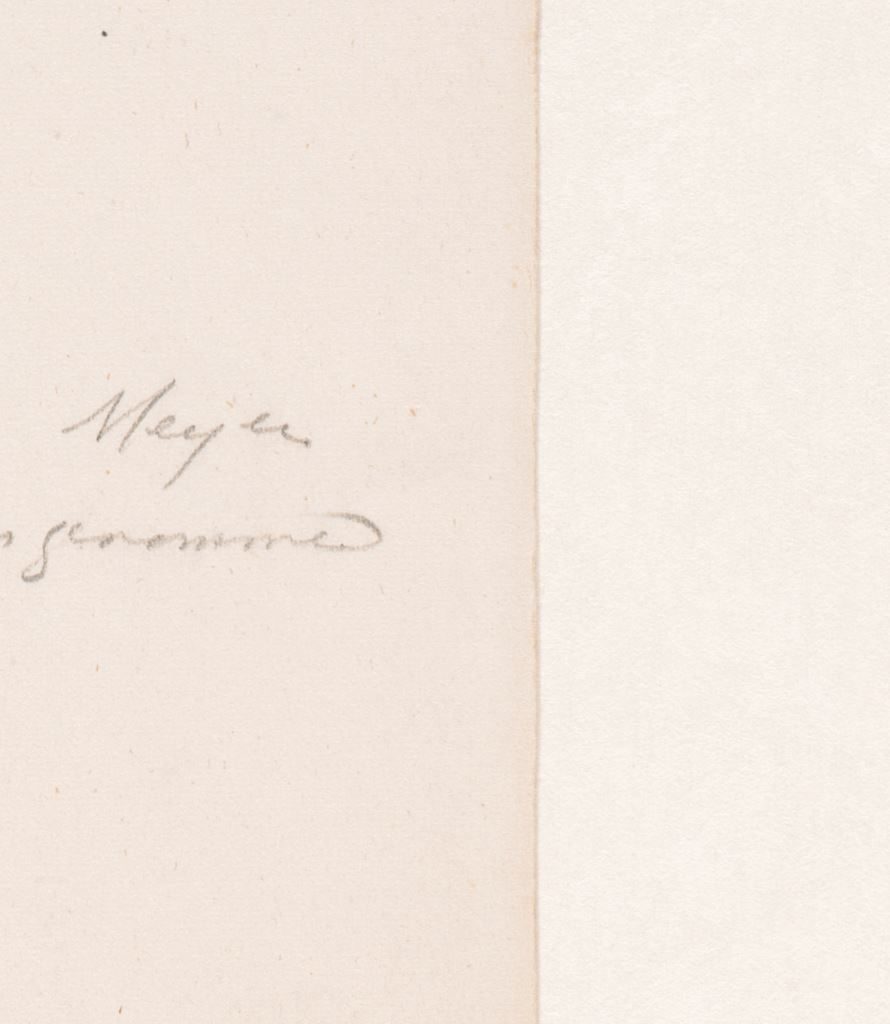 Meyer
genommen